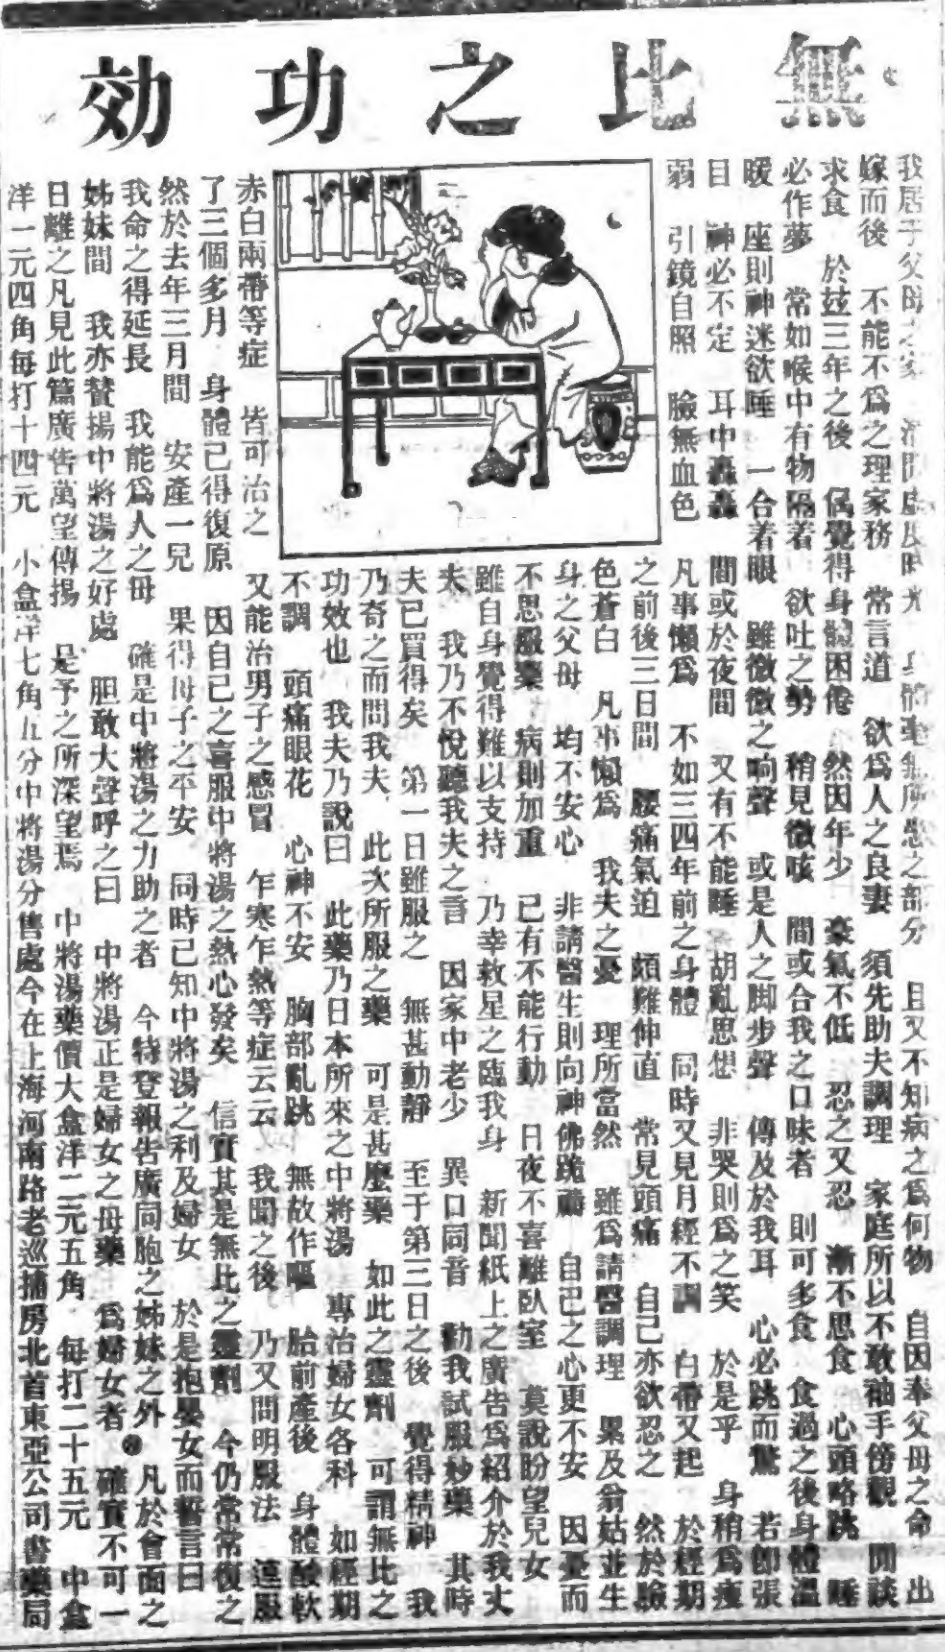 無比之功効
我居于父母之家 清閒處度時光 身體毫無所患之部分 且又不知病之為何物 自因奉父母之命 出
嫁而後 不能不為之理家務 常言道 欲為人之良妻 須先助夫調理 家庭所以不敢袖手傍觀 閒談
求食 於玆三年之後 偶覺得身體困倦 然因年少 豪氣不低 忍之又忍 漸不思食 心頭略跳 睡
必作夢 常如喉中有物隔着 欲吐之勢 稍見微咳 間或合我之口味者 則可多食 食過之後身體溫
暖 座則神迷欲睡 一合着眼 雖微微之响聲 或是人之脚步聲 傳及於我耳 心必跳而驚 若卽張
目 神必不定 耳中轟轟 間或於夜間 又有不能睡 胡亂思想 非哭則為之笑 於是乎 身稍為瘦
弱 引鏡自照 臉無血色 凡事懶為 不如三四年前之身體 同時又見月經不調 白帶又起 於經期
之前後三日間 腰痛氣迫 頗難伸直 常見頭痛 自己亦欲忍之 然於臉
色蒼白 凡事懶為 我夫之憂 理所當然 雖為請醫調理 累及翁姑並生
身之父母 均不安心 非請醫生則向神佛跪禱 自己之心更不安 因憂而
不思服藥 病則加重 已有不能行動 日夜不喜離臥室 莫說盼望兒女
雖自身覺得難以支持 乃幸救星之臨我身 新聞紙上之廣告為紹介於我丈
夫 我乃不悅聽我夫之言 因家中老少 異口同音 勸我試服妙藥 其時
夫已買得矣 第一日雖服之 無甚動靜 至于第三日之後 覺得精神 我
乃奇之而問我夫 此次所服之藥 可是甚麼藥 如此之靈劑 可謂無比之
功效也 我夫乃說曰 此藥乃日本所來之中將湯 專治婦女各科 如經期
不調 頭痛眼花 心神不安 胸部亂跳 無故作嘔 胎前產後 身體酸軟
赤白兩帶等症 皆可治之 又能治男子之感冒 乍寒乍熱等症云云 我聞之後 乃又問明服法 連服
了三個多月 身體已得復原 因自己之喜服中將湯之熱心發矣 信實其是無比之靈劑 今仍常常復之
然於去年三月間 安產一兒 果得母子之平安 同時已知中將湯之利及婦女 於是抱嬰女而誓言曰
我命之得延長 我能為人之母 確是中將湯之力助之者 今特登報告廣同胞之姊妹之外 凡於會面之
姊妹間 我亦贊揚中將湯之好處 胆敢大聲呼之曰 中將湯正是婦女之母藥 為婦女者 確實不可一
日離之凡見此篇廣告萬望傳揚 是予之所深望焉 中將湯藥價大盒洋二元五角 每打二十五元 中盒
洋一元四角每打十四元 小盒洋七角五分中將湯分售處今在上海河南路老巡捕房北首東亞公司書藥局